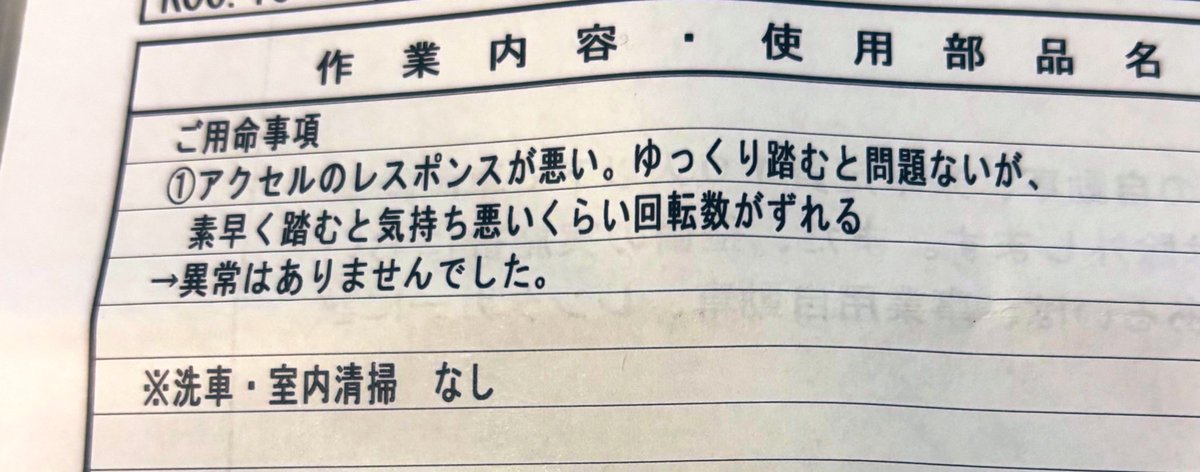 作業内容・使用部品名
ご用命事項
①アクセルのレスポンスが悪い。ゆっくり踏むと問題ないが、
素早く踏むと気持ち悪いくらい回転数がずれる
→異常はありませんでした。
※洗車・室内清掃　なし